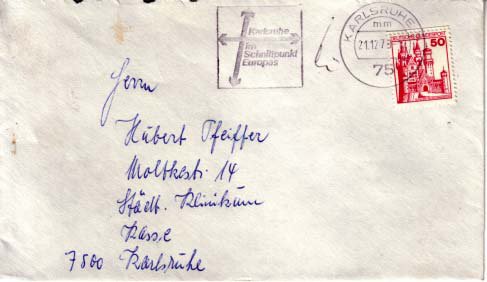 Karlsruhe
im
Schnittpunkt
Europas
KARLSRUHE
mm
21.12.7
75
DEUTSCHE BUNDESPOST
50
Herrn
Hubert Pfeiffer
Moltkestr. 14
Städt. Klinikum
Kasse
7500 Karlsruhe